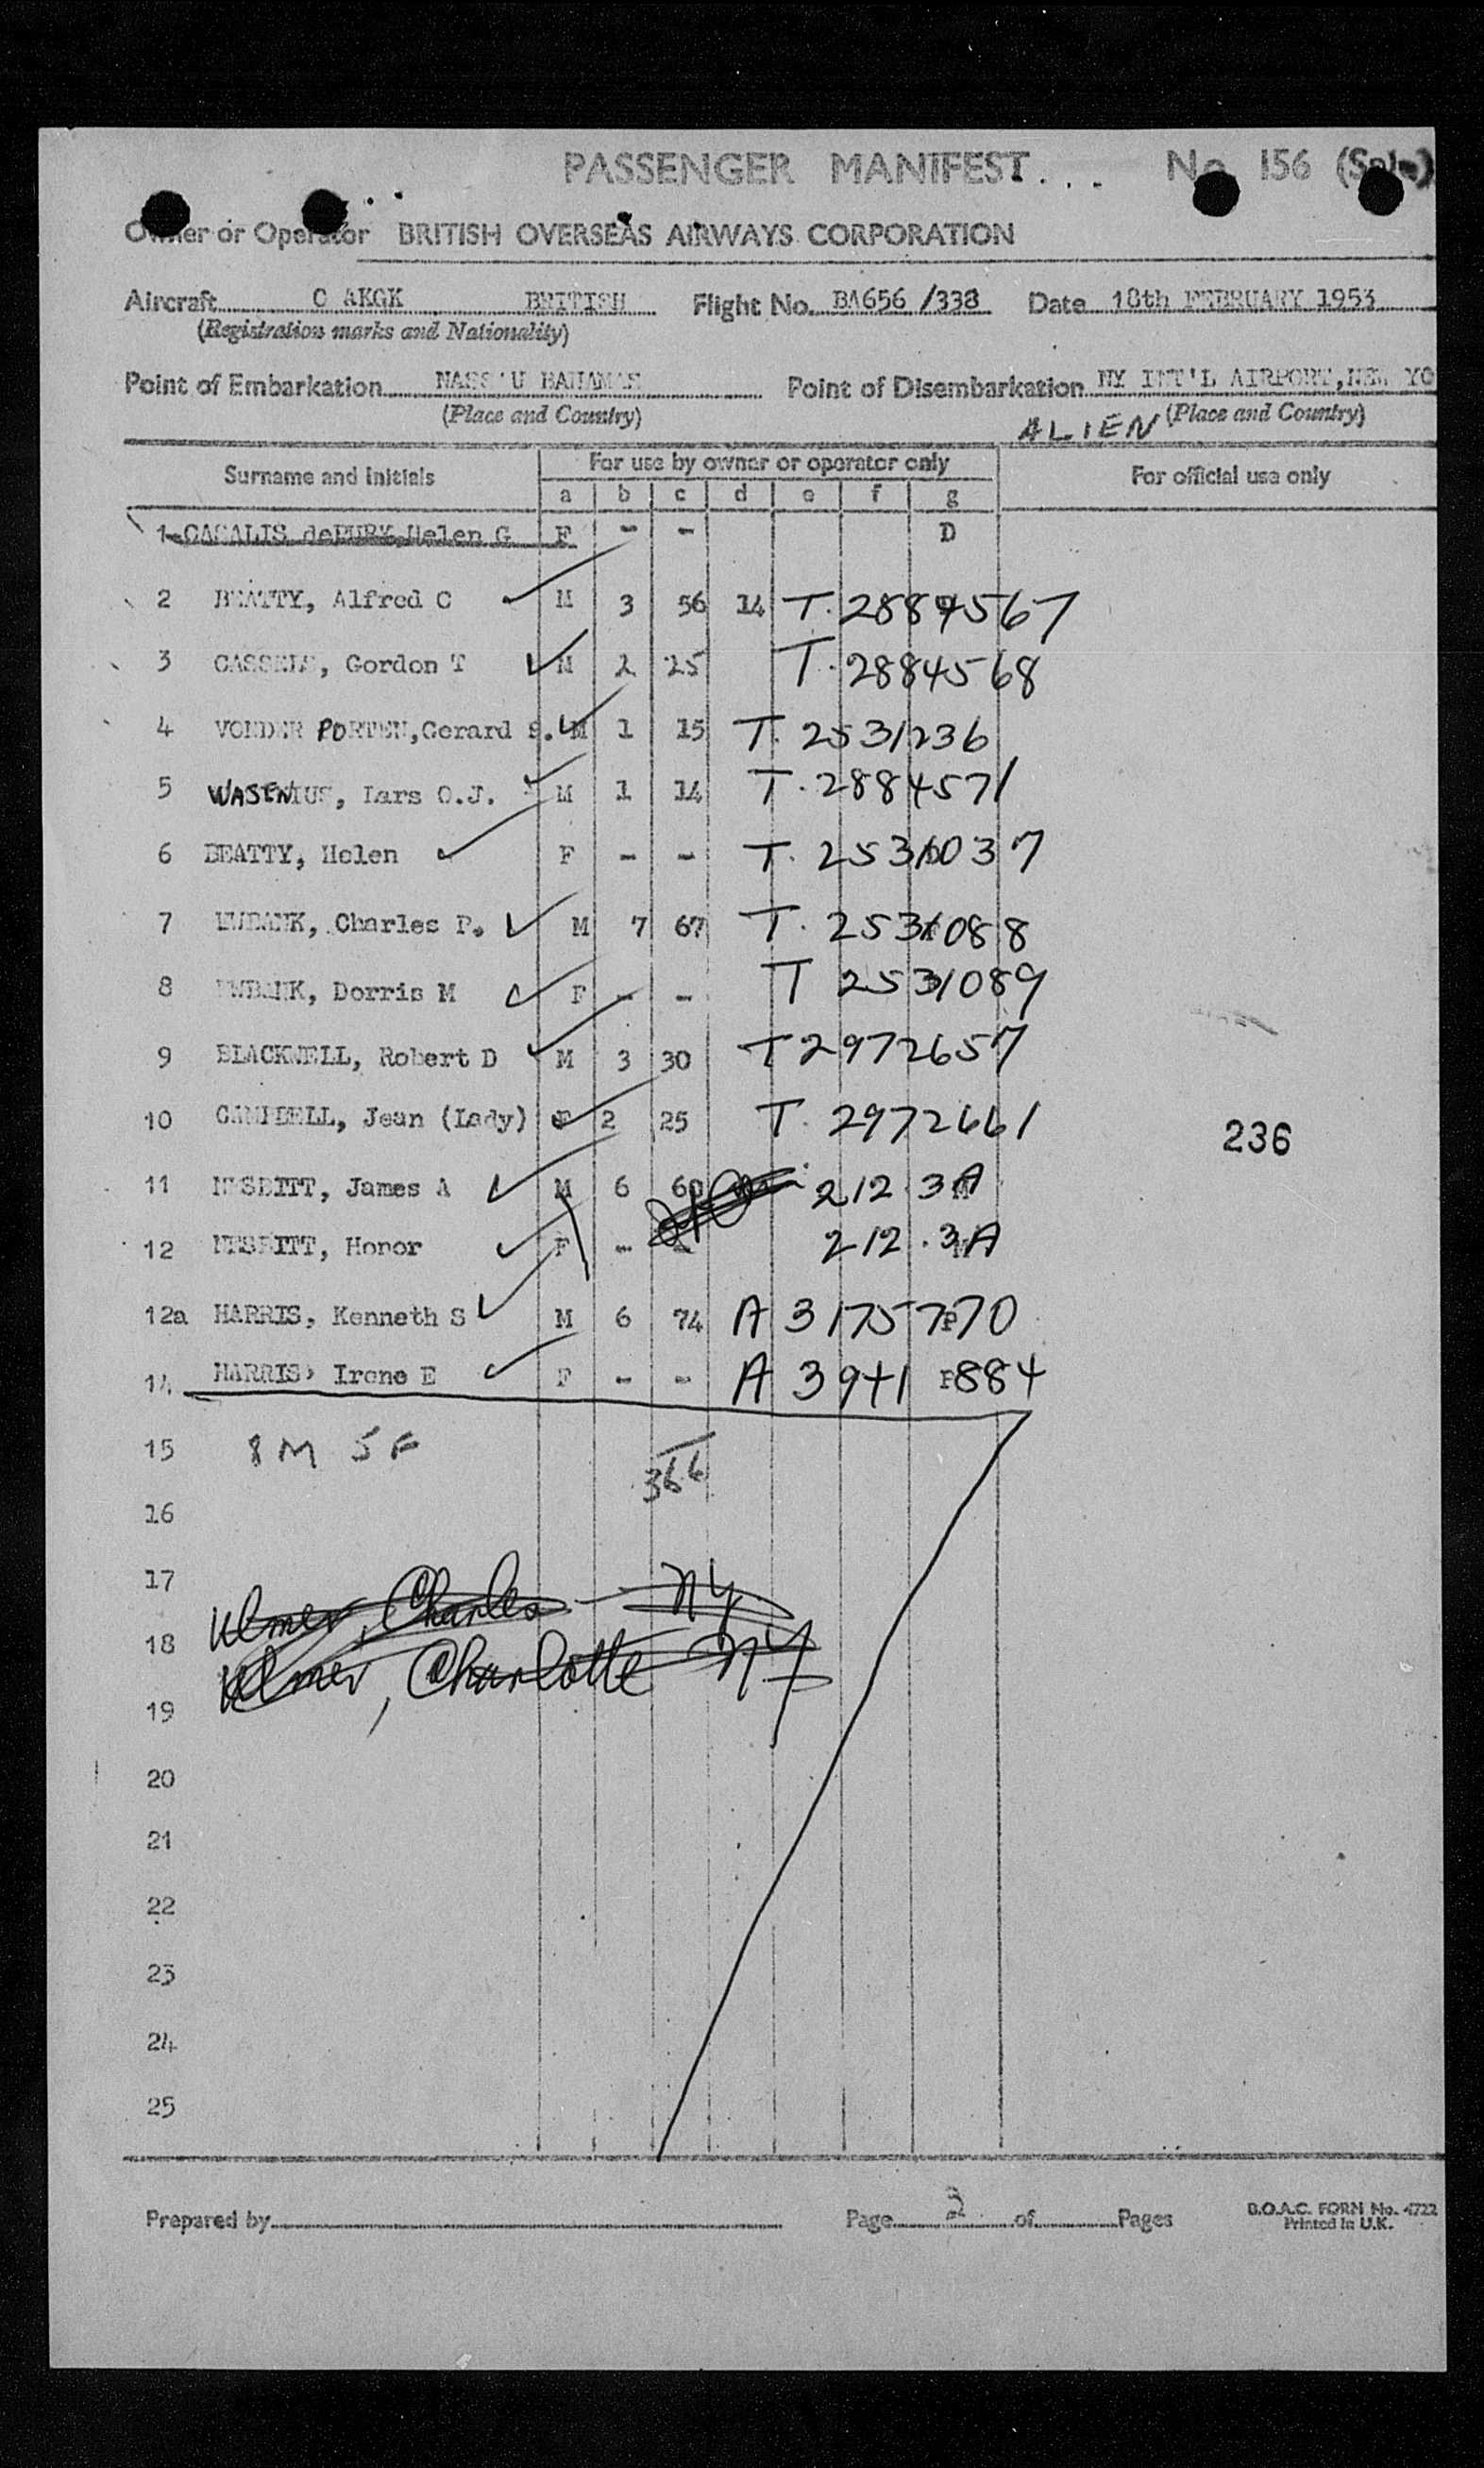 PASSENGER MANIFEST... No 156
Owner or Operator BRITISH OVERSEAS AIRWAYS CORPORATION
Aircraft G AKGK BRITISH Flight No. BA656 /338 Date 18th FEBRUARY 1953
(Registration marks and Nationality)
Point of Embarkation NASSAU BAHAMAS Point of Disembarkation NY INT'L AIRPORT, NEW YO
(Place and Country) ALIEN (Place and Country)
Surname and Initials For use by owner or operator only For official use only
a b c d e f g
1 CASALIS dePURY, Helen G F - - D
2 BEATTY, Alfred C M 3 56 14 T. 2884567
3 CASSELS, Gordon T M 2 25 T. 2884568
4 VONDER PORTEN, Gerard S. M 1 15 T. 2531236
5 WASENIUS, Lars O.J. M 1 14 T. 2884571
6 BEATTY, Helen F - - T. 2531037
7 EWBANK, Charles P. M 7 67 T. 2531088
8 EWBANK, Dorris M F - - T 2531089
9 BLACKWELL, Robert D M 3 30 T 2972657
10 CAMPBELL, Jean (Lady) F 2 25 T. 2972661
236
11 NESBITT, James A M 6 60 212.3A
12 NESBITT, Honor F - - 212.3A
12a HARRIS, Kenneth S M 6 74 A 3175770
14 HARRIS, Irene E F - - A 3941884
15 8M 5F 366
16
17
Ulmer, Charles - NY
18
Ulmer, Charlotte NY
19
20
21
22
23
24
25
Prepared by Page 2 of Pages B.O.A.C. FORM No. 4722
Printed in U.K.